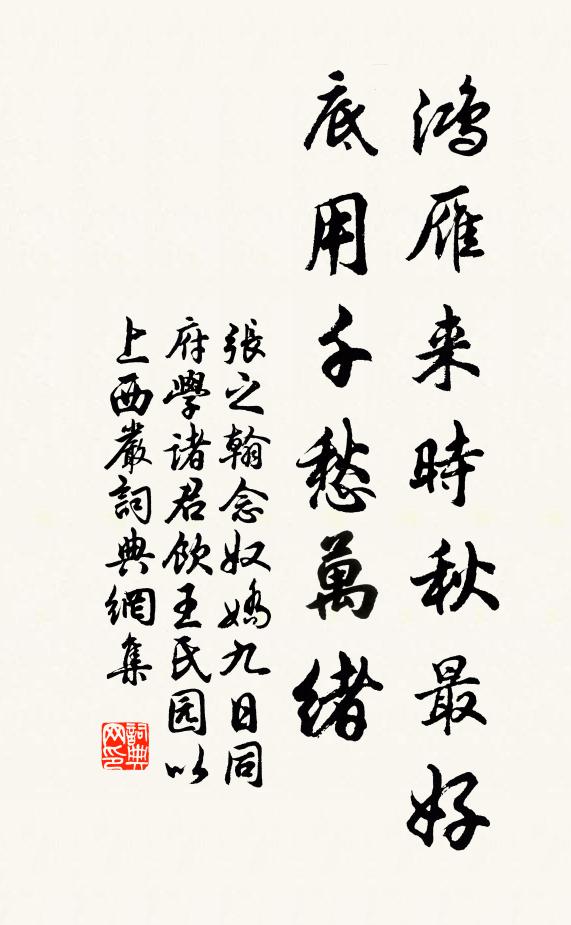 鴻雁来時秋最好
底用千愁萬緒
張之翰念奴嬌九日同
府學諸君飲王氏园以
上西巖詞典網集
詞典网印